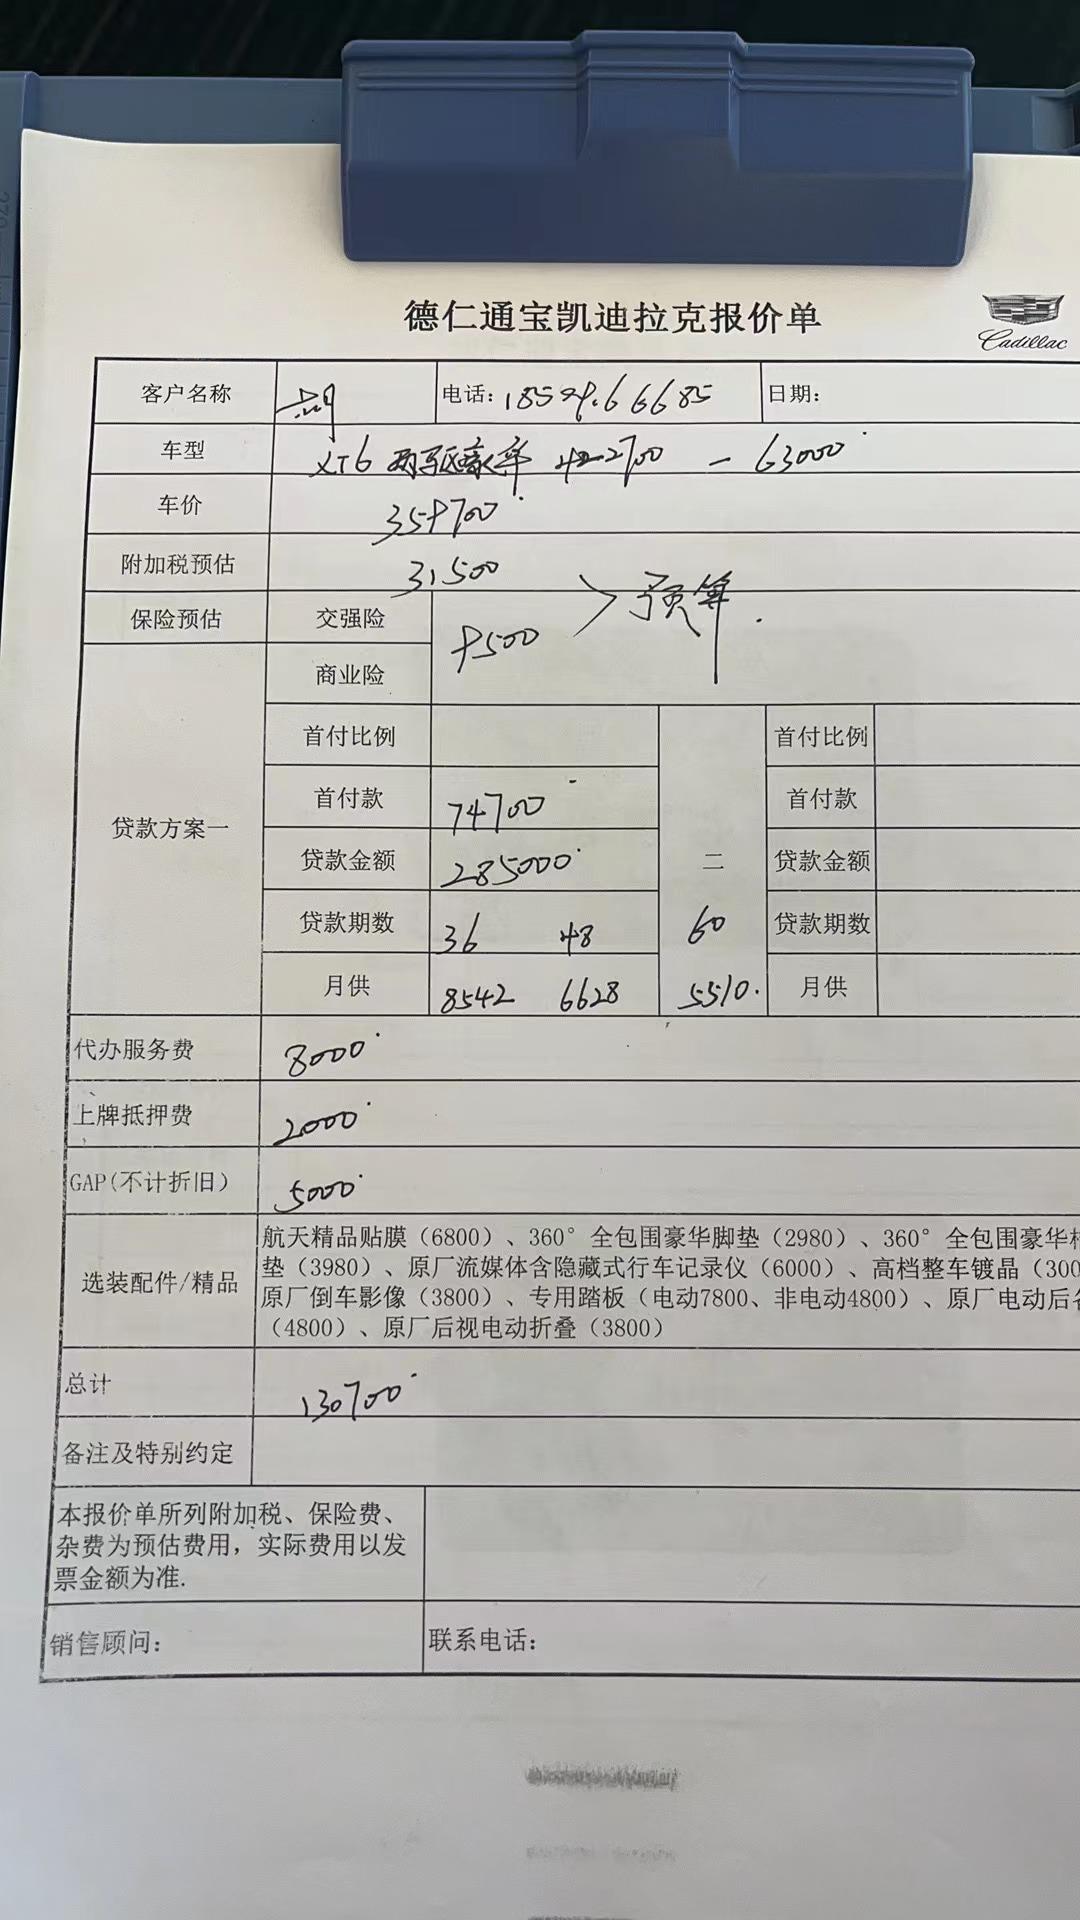 德仁通宝凯迪拉克报价单
Cadillac
客户名称 电话: 日期:
车型 XT6 两驱豪华 422700 - 63000
车价 359700
附加税预估 31500
保险预估 交强险 9500 > 预算.
商业险
首付比例 首付比例
首付款 74700 首付款
贷款方案一 贷款金额 285000 二 贷款金额
贷款期数 36 48 60 贷款期数
月供 8542 6628 5510. 月供
代办服务费 8000
上牌抵押费 2000
GAP(不计折旧) 5000
航天精品贴膜（6800）、360°全包围豪华脚垫（2980）、360°全包围豪华
选装配件/精品 垫（3980）、原厂流媒体含隐藏式行车记录仪（6000）、高档整车镀晶（300
原厂倒车影像（3800）、专用踏板（电动7800、非电动4800）、原厂电动后
（4800）、原厂后视电动折叠（3800）
总计 130700
备注及特别约定
本报价单所列附加税、保险费、
杂费为预估费用，实际费用以发
票金额为准.
销售顾问: 联系电话: